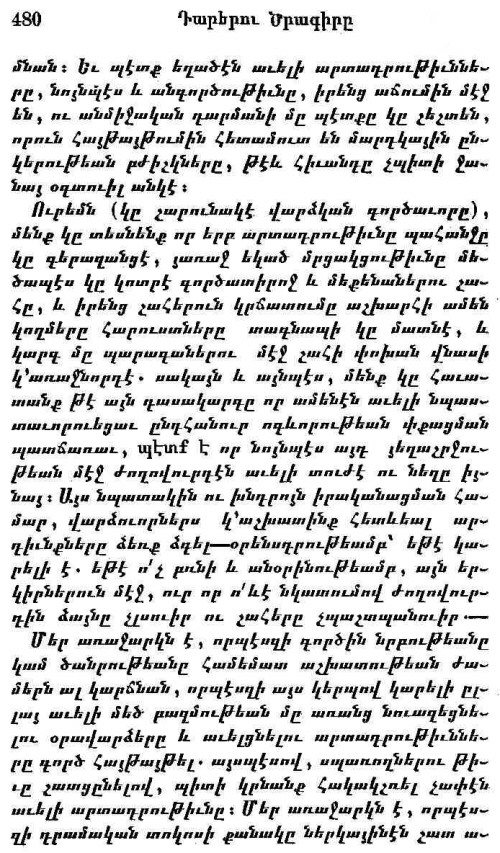 480 Դարերու Ծրագիրը
մնան։ Եւ պէտք եղածէն աւելի արտադրութիւննե-
րը, նոյնպէս և անգործութիւնը, իրենց աճումին մէջ
են, ու անմիջական դարմանի մը պէտքը կը շեշտեն,
որուն Հայթայթումին հետամուտ են մարդկային ըն-
կերութեան բժիշկները, թէև հիւանդը չպիտի ջա-
նայ օգտուիլ անկէ։
Ուրեմն (կը շարունակէ վարձկան գործաւորը),
մենք կը տեսնենք որ երբ արտադրութիւնը պահանջը
կը գերազանցէ, յառաջ եկած մրցակցութիւնը մե-
ծապէս կը կոտրէ գործատիրոջ և մեքենաներու շա-
հը, և իրենց շահերուն կրճատումը աշխարհի ամեն
կողմերը հարուստները տագնապի կը մատնէ, և
կարգ մը պարագաներու մէջ շահի փոխան վնասի
կ՚առաջնորդէ. սակայն և այնպէս, մենք կը հաւա-
տանք թէ այն դասակարգը որ ամենէն աւելի նպաս-
տաւորուեցաւ ընդհանուր ոգևորութեան փքացման
պատճառաւ, պէտք է որ նոյնպէս այդ յեղաշրջու-
թեան մէջ ժողովուրդէն աւելի տուժէ ու նեղը իյ-
նայ։ Այս նպատակին ու խնդրոյն իրականացման հա-
մար, վարձուորներս կ՚աշխատինք հետևեալ ար-
դիւնքները ձեռք ձգել—օրենսդրութեամբ՝ եթէ կա-
րելի է. եթէ ո՛չ բռնի և անօրինութեամբ, այն եր-
կիրներուն մէջ, ուր որ ո՛ևէ նկատումով ժողովուր-
դին ձայնը չլսուիր ու շահերը չպաշտպանուիր.—
Մեր առաջարկն է, որպէսզի գործին նրբութեանը
կամ ծանրութեանը համեմատ աշխատութեան ժա-
մերն ալ կարճնան, որպէսզի այս կերպով կարելի ըլ-
լայ աւելի մեծ բազմութեան մը առանց նուազեցնե-
լու օրավարձերը և աւելցնելու արտադրութիւննե-
րը գործ հայթայթել. այսպէսով, սպառողներու թի-
ւը շատցընելով, պիտի կրնանք հակակշռել չափէն
աւելի արտադրութիւնը։ Մեր առաջարկն է, որպէս-
զի դրամական տոկոսի քանակը ներկայինէն շատ ա-